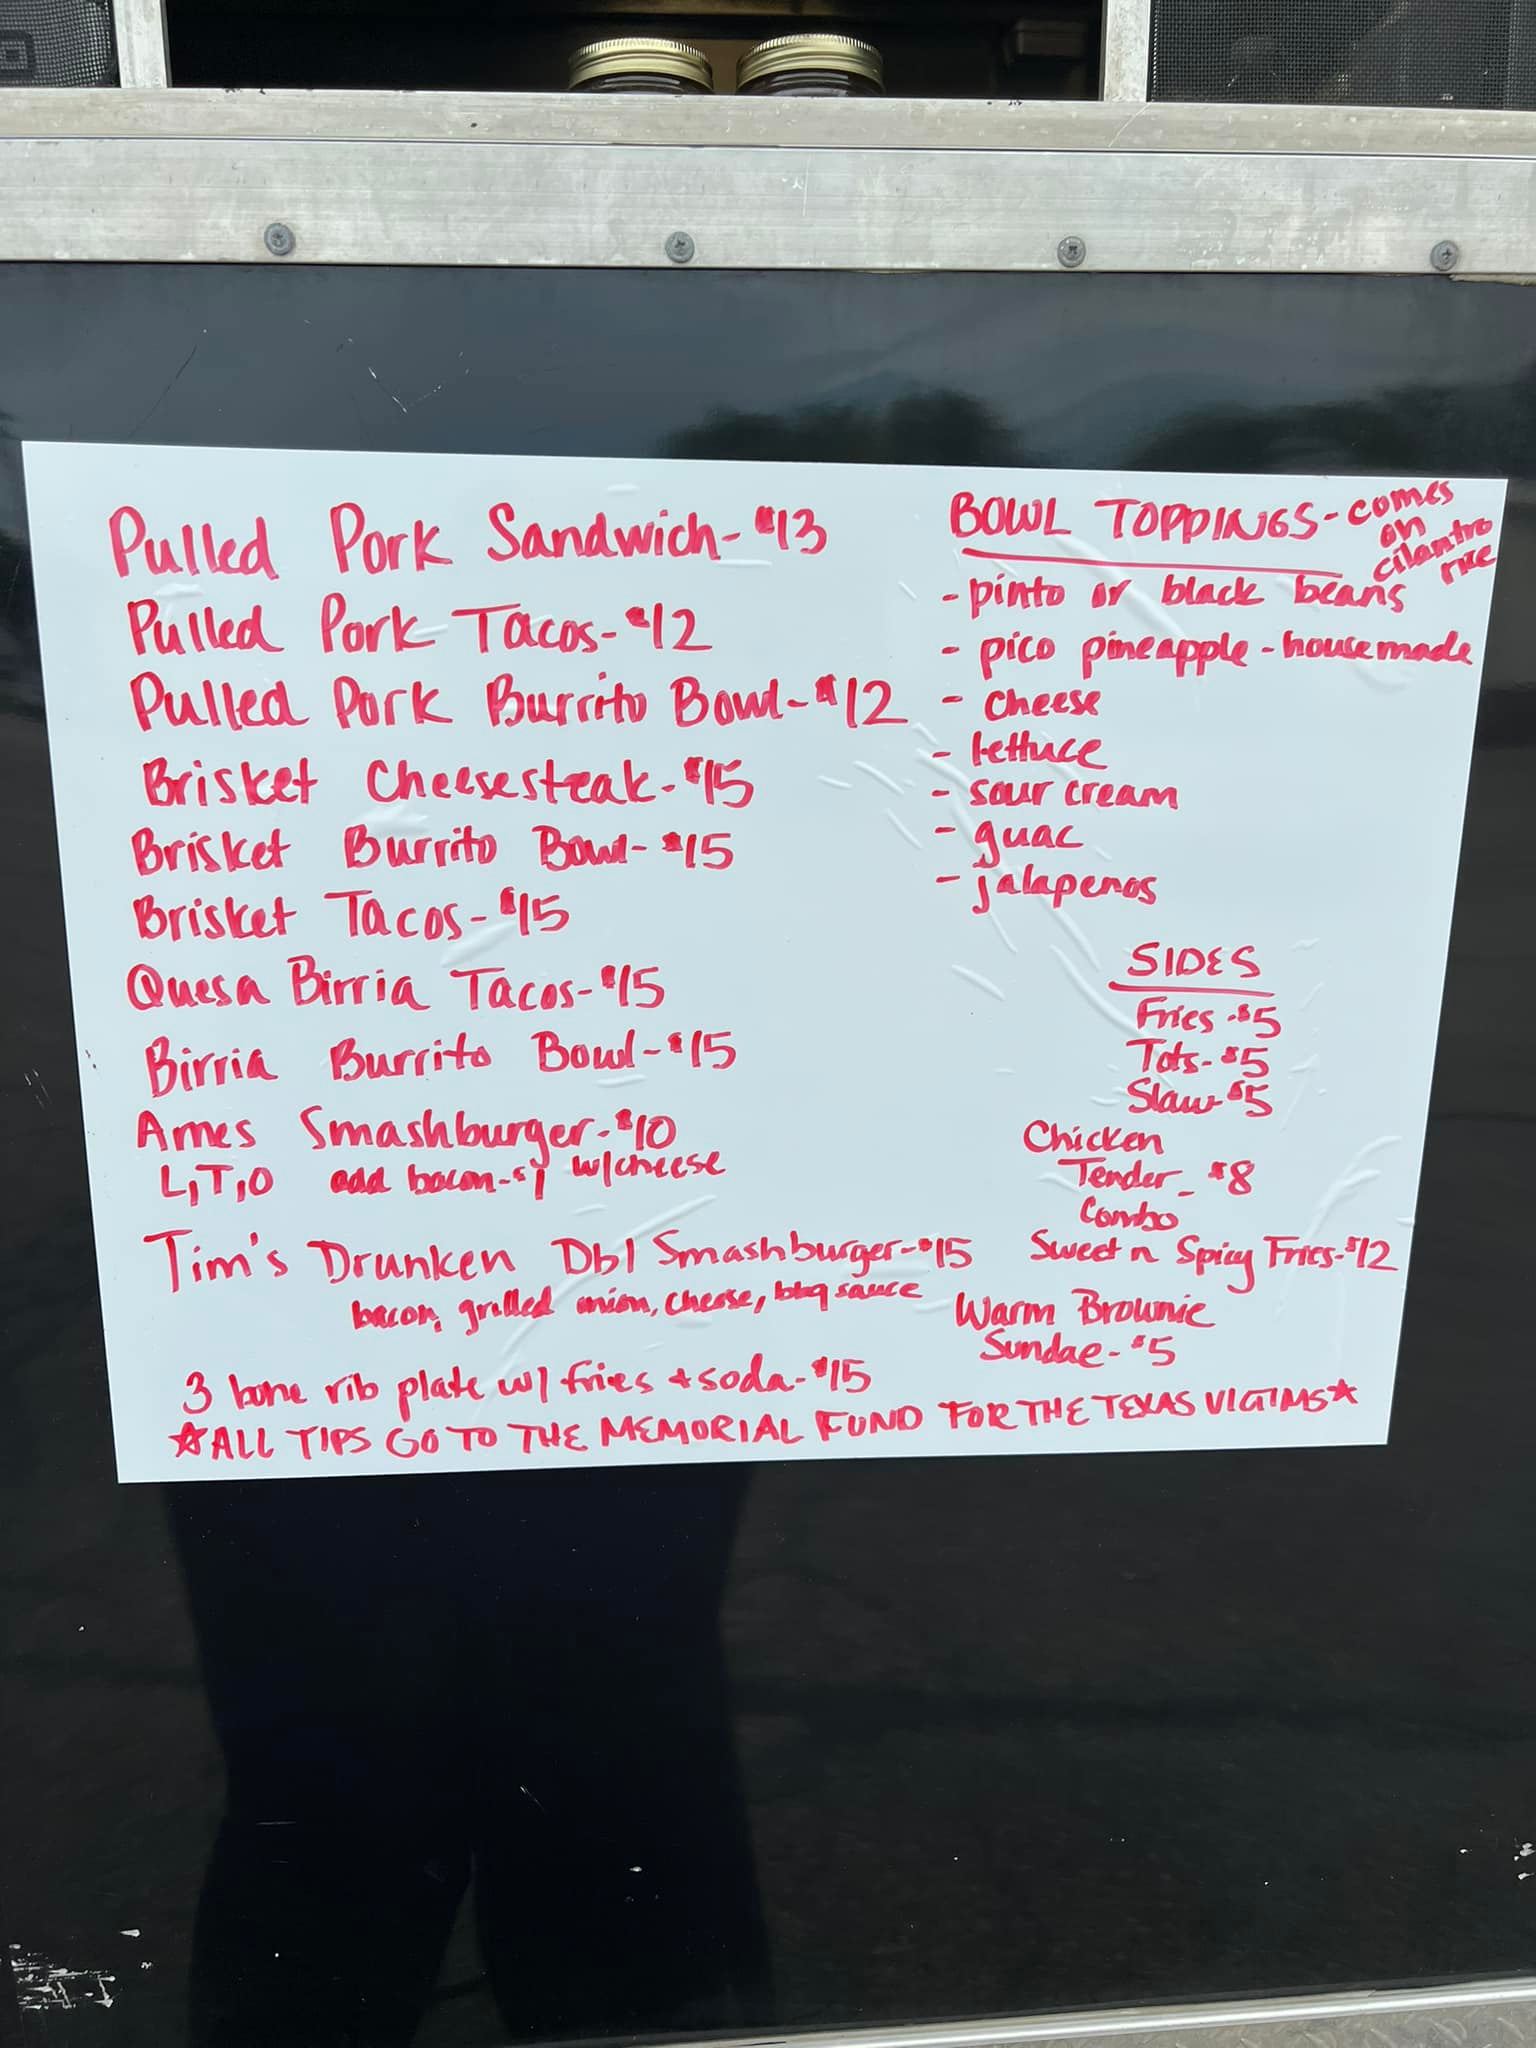 Pulled Pork Sandwich-$13
Pulled Pork Tacos-$12
Pulled Pork Burrito Bowl-$12
Brisket Cheesesteak-$15
Brisket Burrito Bowl-$15
Brisket Tacos-$15
Quesa Birria Tacos-$15
Birria Burrito Bowl-$15
Ames Smashburger-$10
L,T,O add bacon-$1 w/cheese
Tim's Drunken Dbl Smashburger-$15
bacon, grilled onion, cheese, bbq sauce
3 bone rib plate w/ fries + soda-$15
☆ALL TIPS GO TO THE MEMORIAL FUND FOR THE TEXAS VICTIMS☆
BOWL TOPPINGS-comes
on
cilantro
rice
- pinto or black beans
- pico pineapple - housemade
- cheese
- lettuce
- sour cream
- guac
- jalapenos
SIDES
Fries-$5
Tots-$5
Slaw-$5
Chicken
Tender - $8
Combo
Sweet n Spicy Fries-$12
Warm Brownie
Sundae-$5